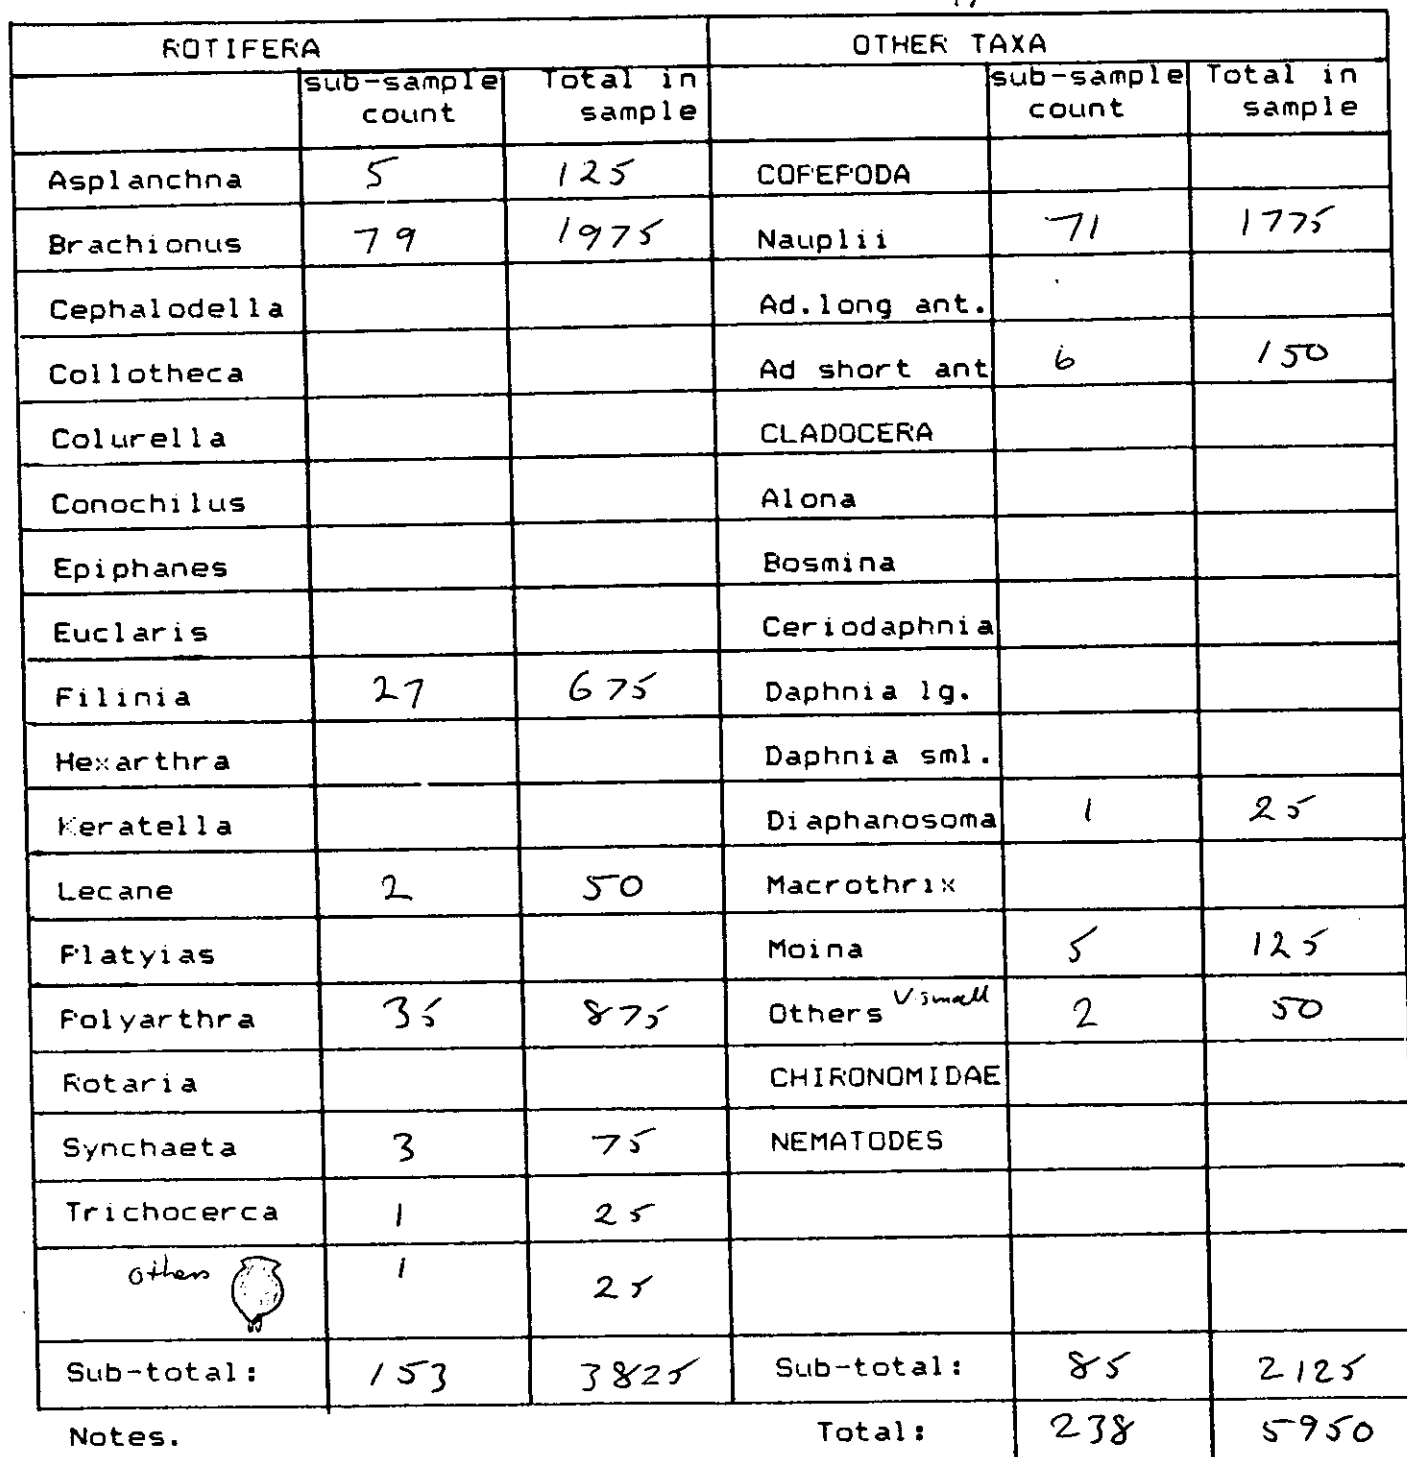 ROTIFERA OTHER TAXA
sub-sample count Total in sample sub-sample count Total in sample
Asplanchna 5 125 COPEPODA
Brachionus 79 1975 Nauplii 71 1775
Cephalodella Ad.long ant.
Collotheca Ad short ant 6 150
Colurella CLADOCERA
Conochilus Alona
Epiphanes Bosmina
Euclaris Ceriodaphnia
Filinia 27 675 Daphnia lg.
Hexarthra Daphnia sml.
Keratella Diaphanosoma 1 25
Lecane 2 50 Macrothrix
Platyias Moina 5 125
Polyarthra 35 875 Others V.small 2 50
Rotaria CHIRONOMIDAE
Synchaeta 3 75 NEMATODES
Trichocerca 1 25
others 1 25
Sub-total: 153 3825 Sub-total: 85 2125
Notes. Total: 238 5950